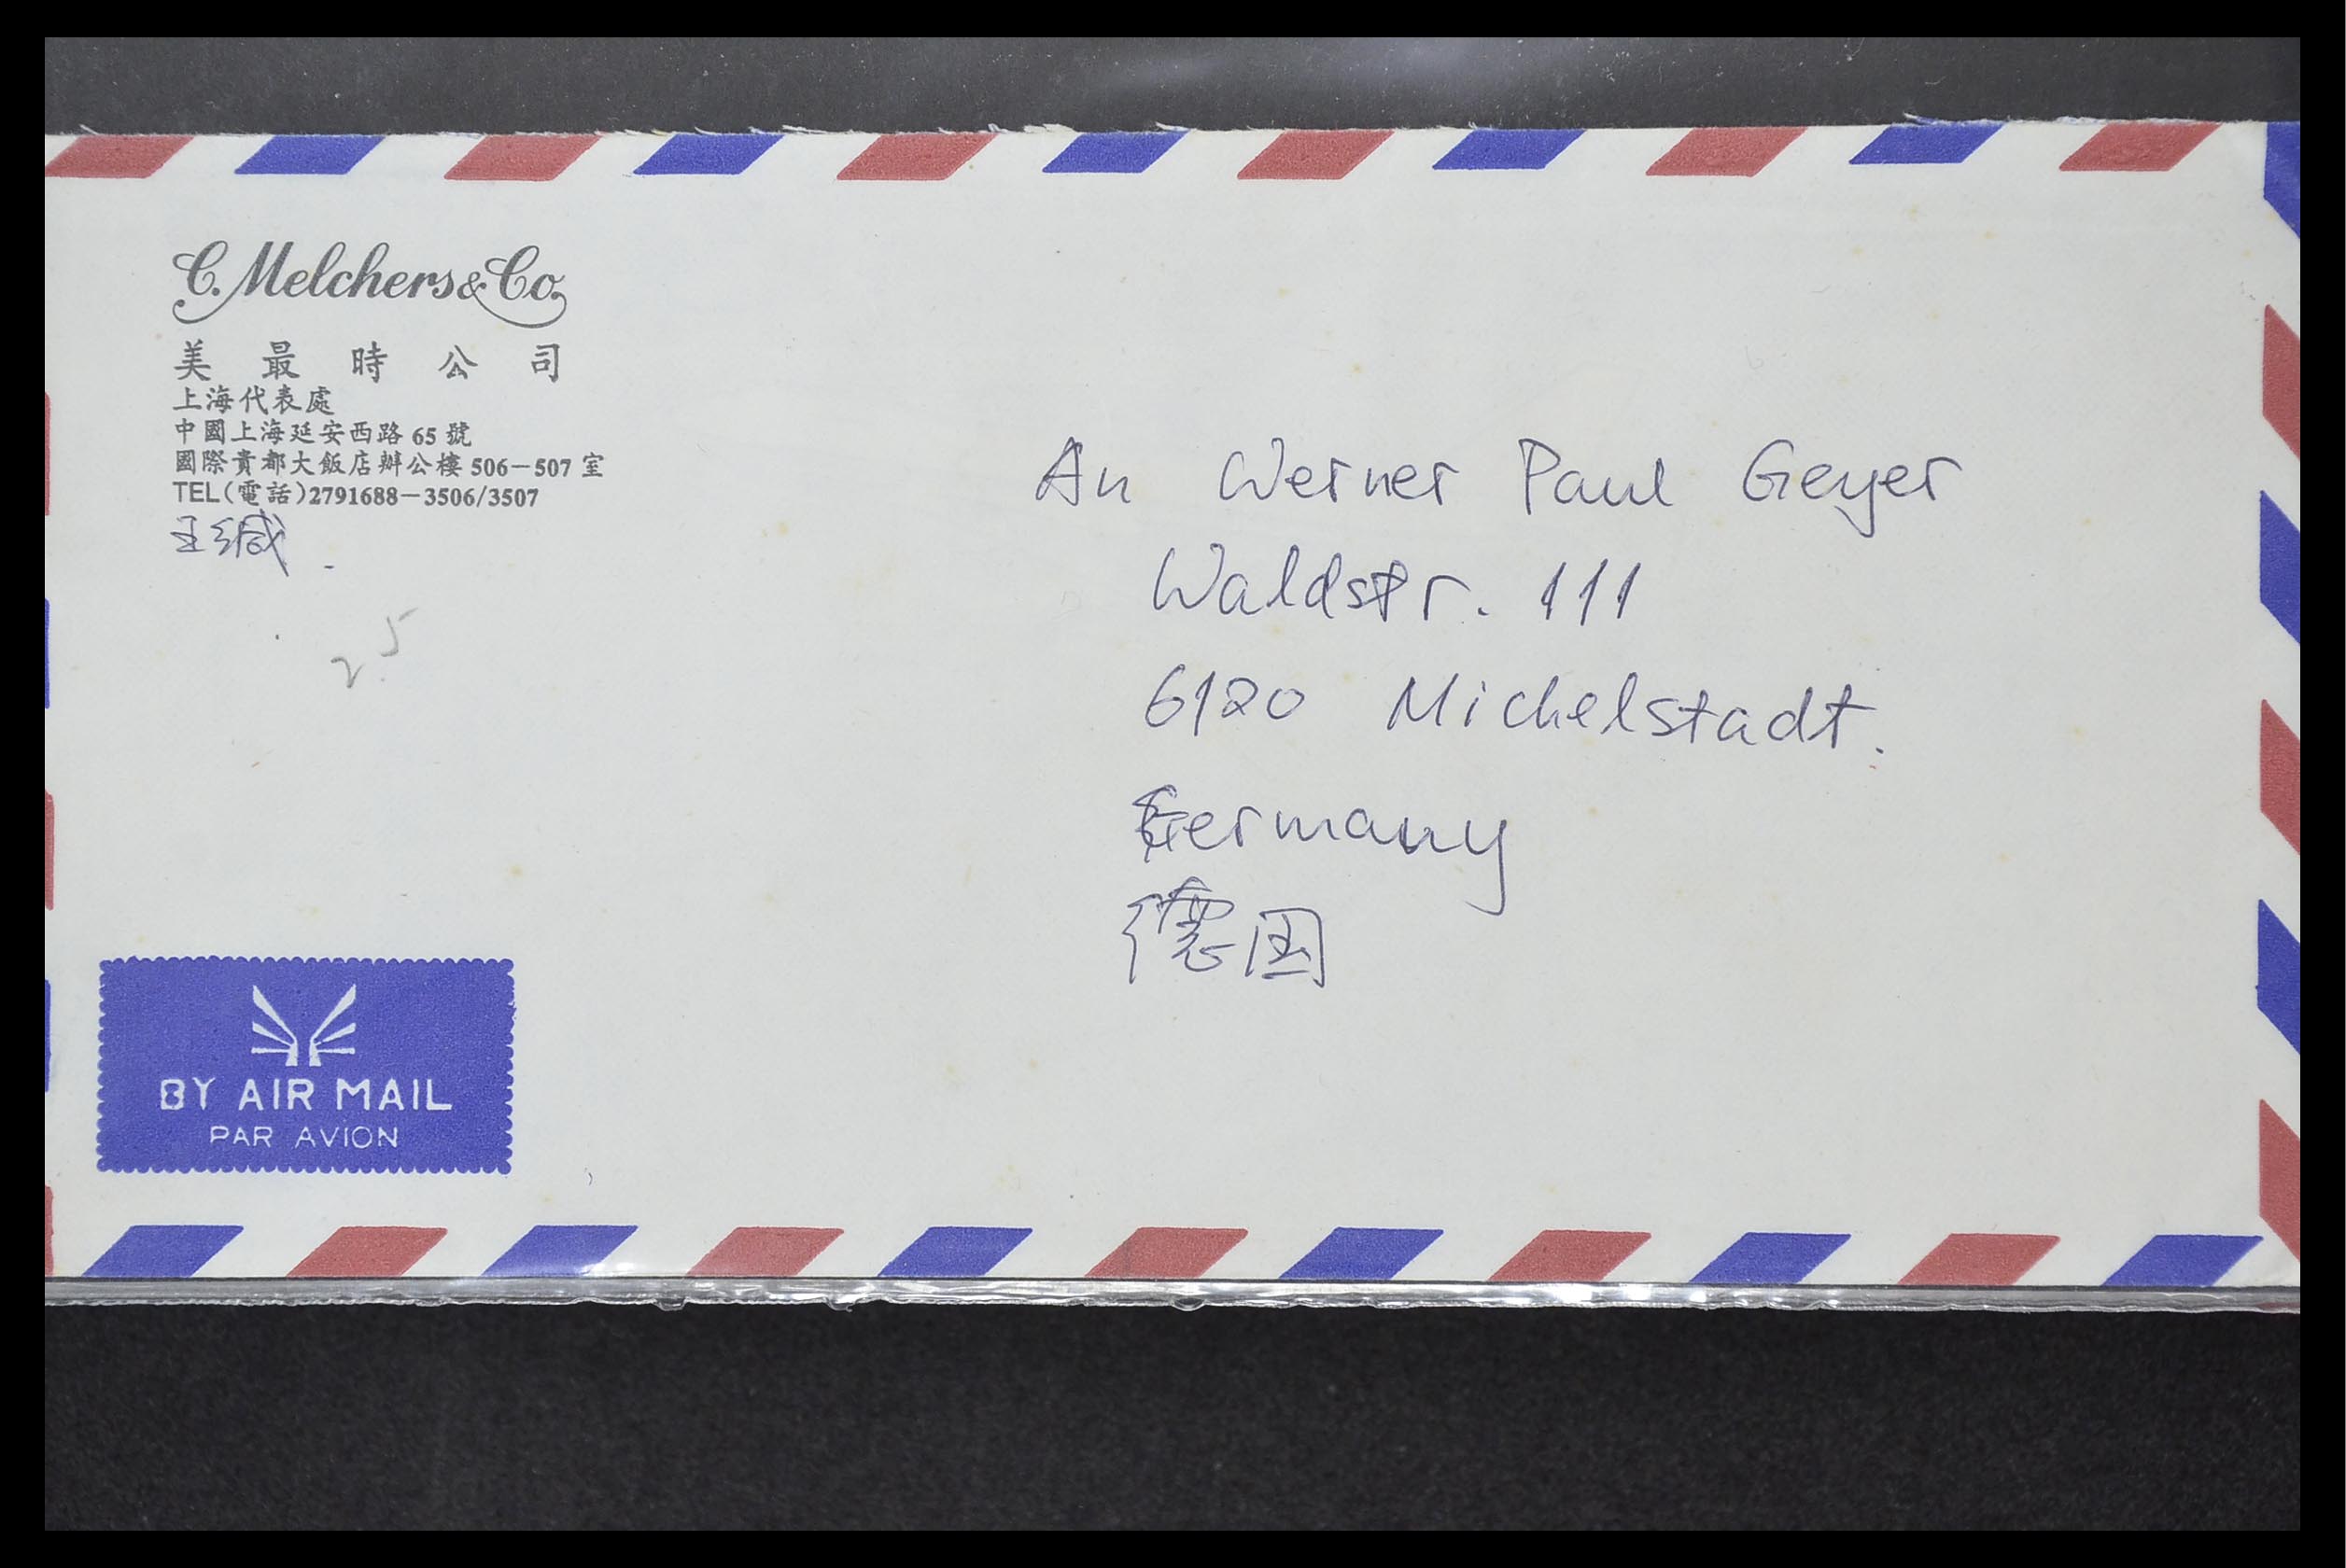 C. Melchers & Co.
美最時公司
上海代表處
中國上海延安西路 65 號
國際貴都大飯店辦公樓 506-507 室
TEL(電話)2791688-3506/3507
王缄
2.5
An Werner Paul Geyer
Waldstr. 111
6120 Michelstadt.
Germany
德国
BY AIR MAIL
PAR AVION